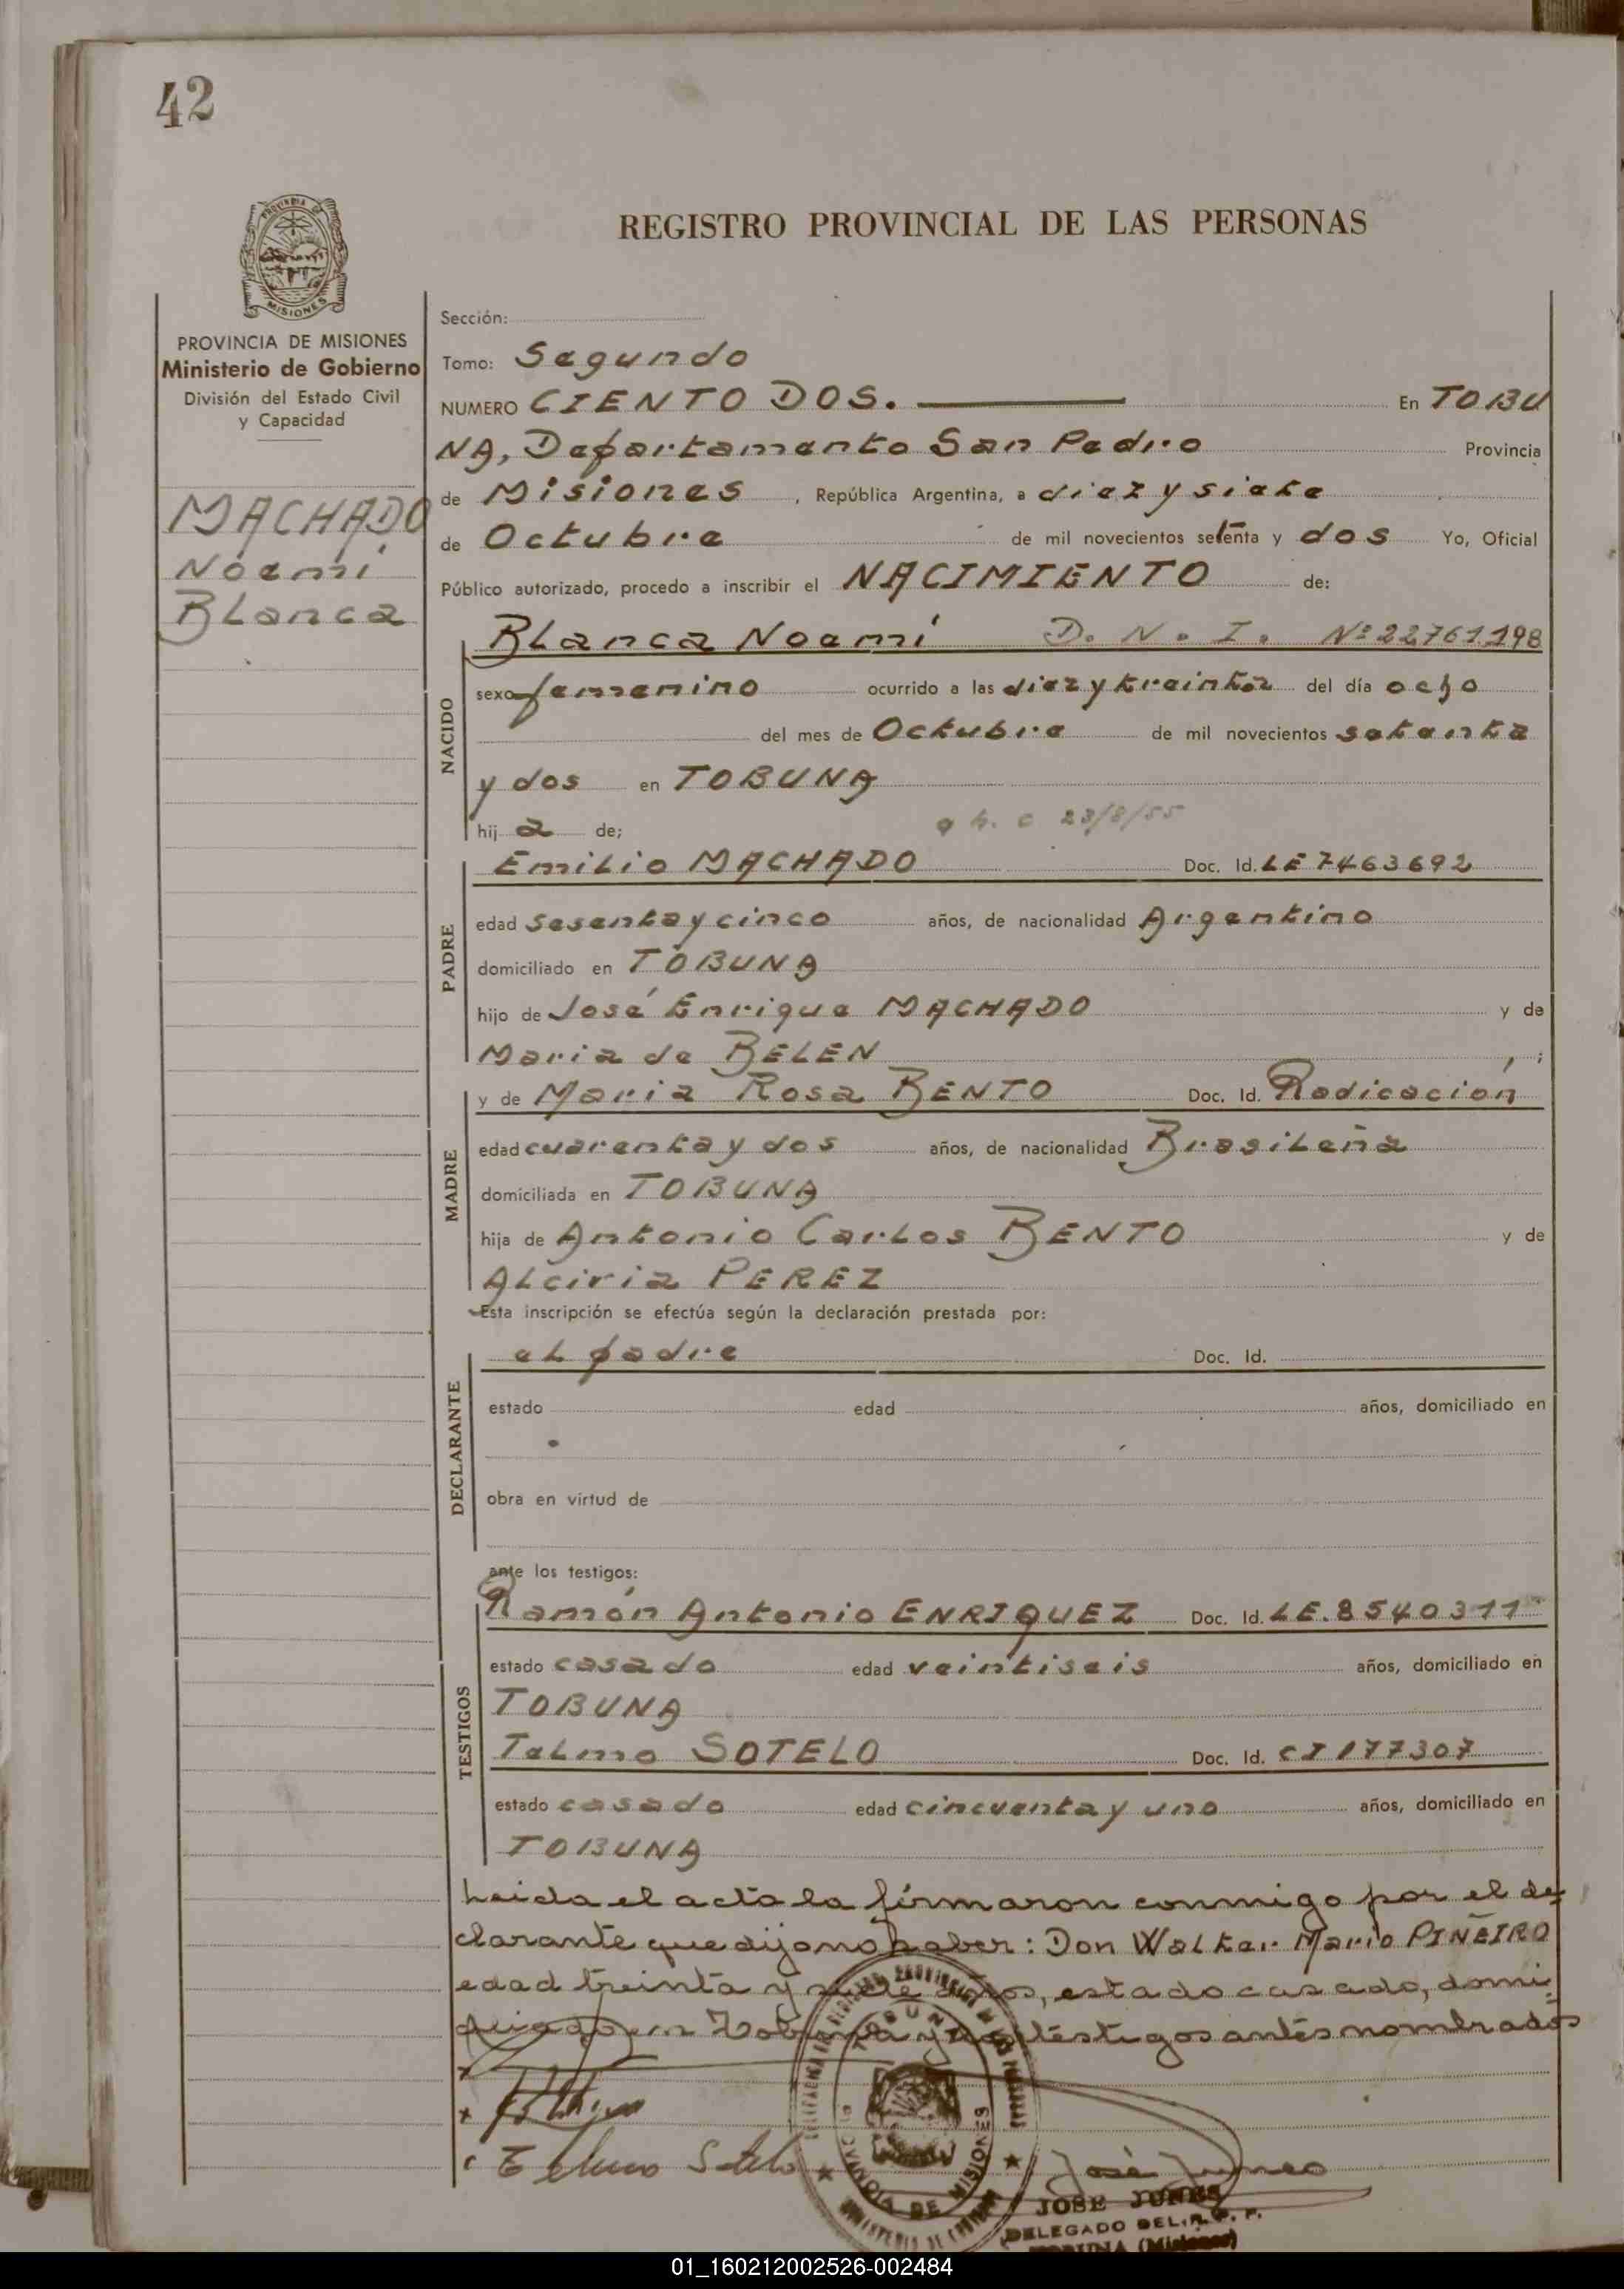 42
PROVINCIA DE
MISIONES
REGISTRO PROVINCIAL DE LAS PERSONAS
PROVINCIA DE MISIONES
Ministerio de Gobierno
División del Estado Civil
y Capacidad
MACHADO
Noemí
Blanca
Sección:
Tomo: Segundo
NUMERO CIENTO DOS. En TOBU
NA, Departamento San Pedro Provincia
de Misiones, República Argentina, a diez y siete
de Octubre de mil novecientos setenta y dos Yo, Oficial
Público autorizado, procedo a inscribir el NACIMIENTO de:
NACIDO
Blanca Noemí D. N. I. Nº 22761.198
sexo femenino ocurrido a las diez y treinta del día ocho
del mes de Octubre de mil novecientos setenta
y dos en TOBUNA
hij a de;
23/8/55
PADRE
Emilio MACHADO Doc. Id. LE 7463692
edad sesenta y cinco años, de nacionalidad Argentino
domiciliado en TOBUNA
hijo de José Enrique MACHADO y de
Maria de BELEN ;
MADRE
y de Maria Rosa BENTO Doc. Id. Radicación
edad cuarenta y dos años, de nacionalidad Brasileña
domiciliada en TOBUNA
hija de Antonio Carlos BENTO y de
Alciria PEREZ
Esta inscripción se efectúa según la declaración prestada por:
DECLARANTE
el padre Doc. Id.
estado edad años, domiciliado en
obra en virtud de
ante los testigos:
TESTIGOS
Ramón Antonio ENRIQUEZ Doc. Id. LE. 8540311
estado casado edad veintiseis años, domiciliado en
TOBUNA
Telmo SOTELO Doc. Id. CI 177307
estado casado edad cincuenta y uno años, domiciliado en
TOBUNA
Leida el acta la firmaron conmigo por el de
clarante que dijo no saber: Don Walter Mario PIÑEIRO
edad treinta y siete años, estado casado, domi
en Tobuna y los testigos antes nombrados
Telmo Sotelo
José Junes
JOSE JUNES
DELEGADO DEL R. P. P.
TOBUNA (Misiones)
01_160212002526-002484